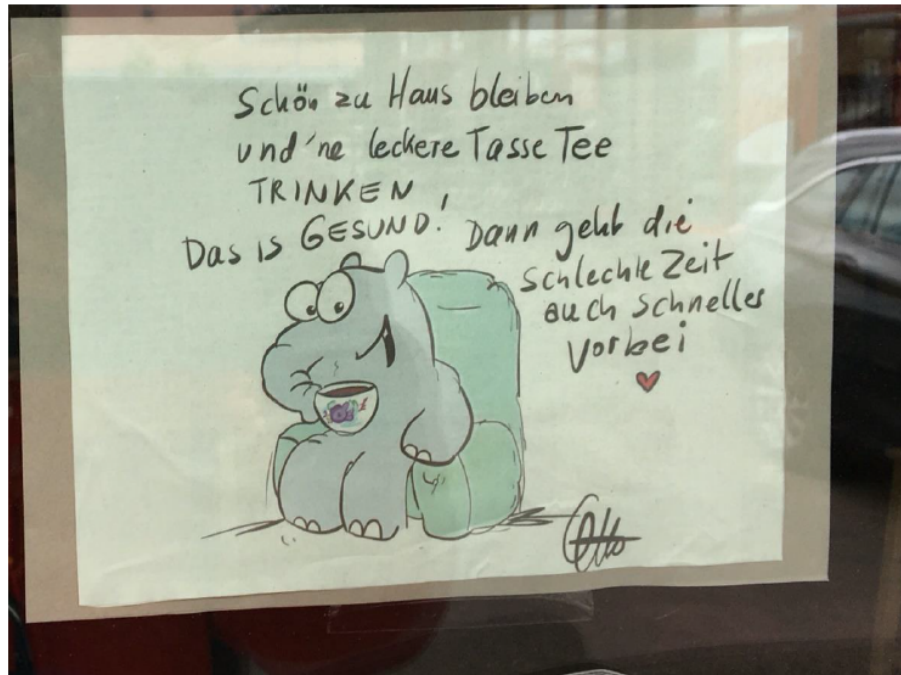 Schön zu Haus bleiben
und 'ne leckere Tasse Tee
TRINKEN
Das is GESUND!
Dann geht die
schlechte Zeit
auch schneller
vorbei
Otto